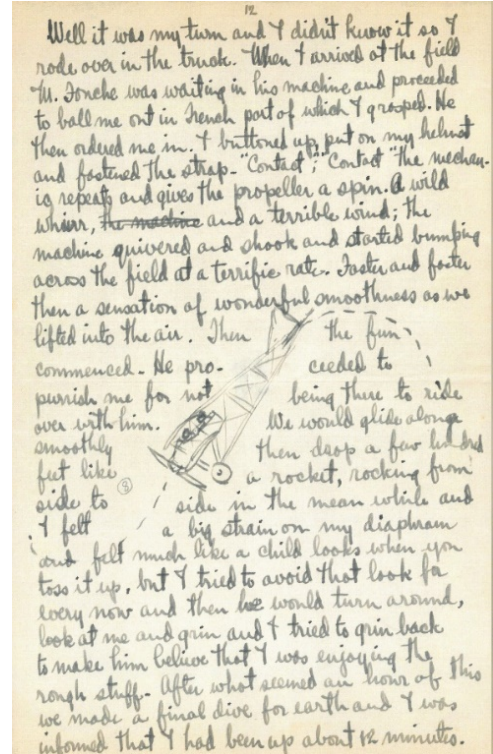 12
Well it was my turn and I didn't know it so I
rode over in the truck. When I arrived at the field
M. Fouche was waiting in his machine and proceeded
to ball me out in French part of which I grasped. He
then ordered me in. I buttoned up, put on my helmet
and fastened the strap - "Contact"; "Contact" the mechan-
ic repeats and gives the propeller a spin. A wild
whirr, the machine and a terrible wind; the
machine quivered and shook and started bumping
across the field at a terrific rate. Faster and faster
then a sensation of wonderful smoothness as we
lifted into the air. Then the fun
commenced. He pro- ceeded to
punish me for not being there to ride
over with him. We would glide along
smoothly then drop a few hundred
feet like a rocket, rocking from
side to side in the mean while and
I felt a big strain on my diaphram
and felt much like a child looks when you
toss it up, but I tried to avoid that look for
every now and then he would turn around,
look at me and grin and I tried to grin back
to make him believe that I was enjoying the
rough stuff. After what seemed an hour of this
we made a final dive for earth and I was
informed that I had been up about 12 minutes.